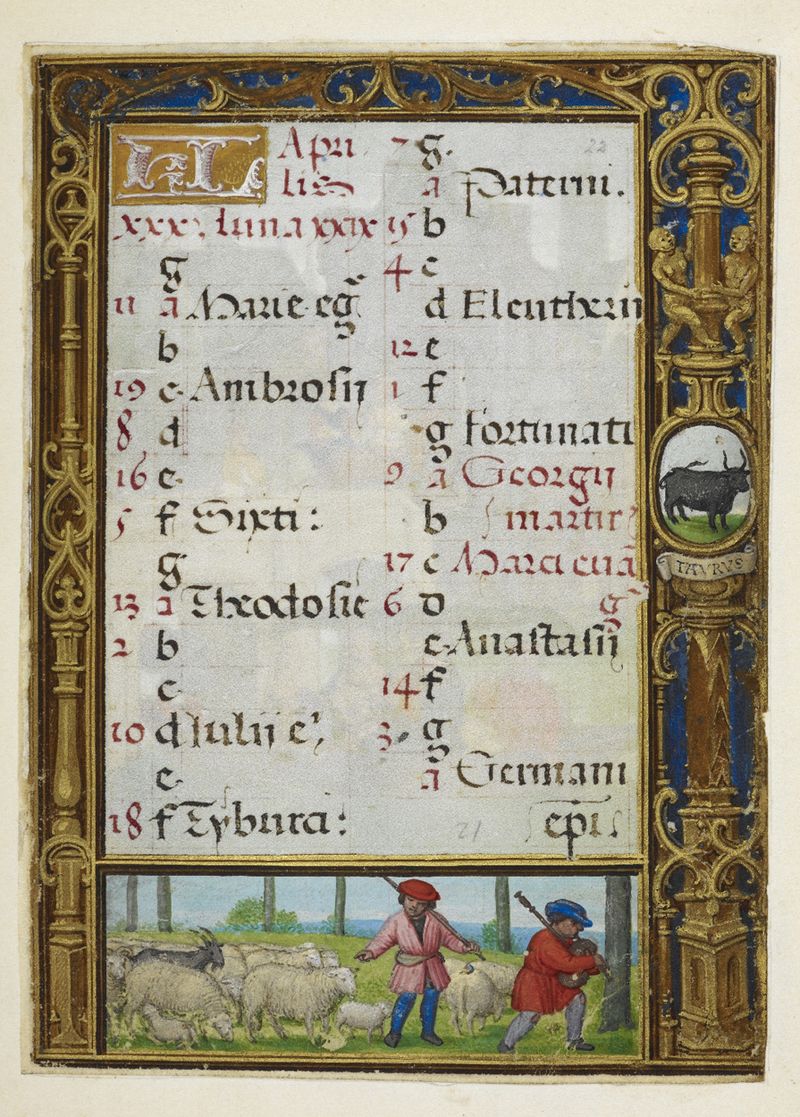 KL Apri
lis
xxx luna xxix
g
11 a Marie eg
b
19 c Ambrosij
8 d
16 e
5 f Sixti:
g
13 a Theodosie
2 b
c
10 d Iulij e
e
18 f Tyburci:
22
7 g
a Paterni.
15 b
4 c
d Eleutherii
12 e
1 f
g Fortunati
9 a Georgij
b martir
17 c Marci euã
6 d g
e Anastasij
14 f
3 g
a Germani
epi
21
TAVRVS